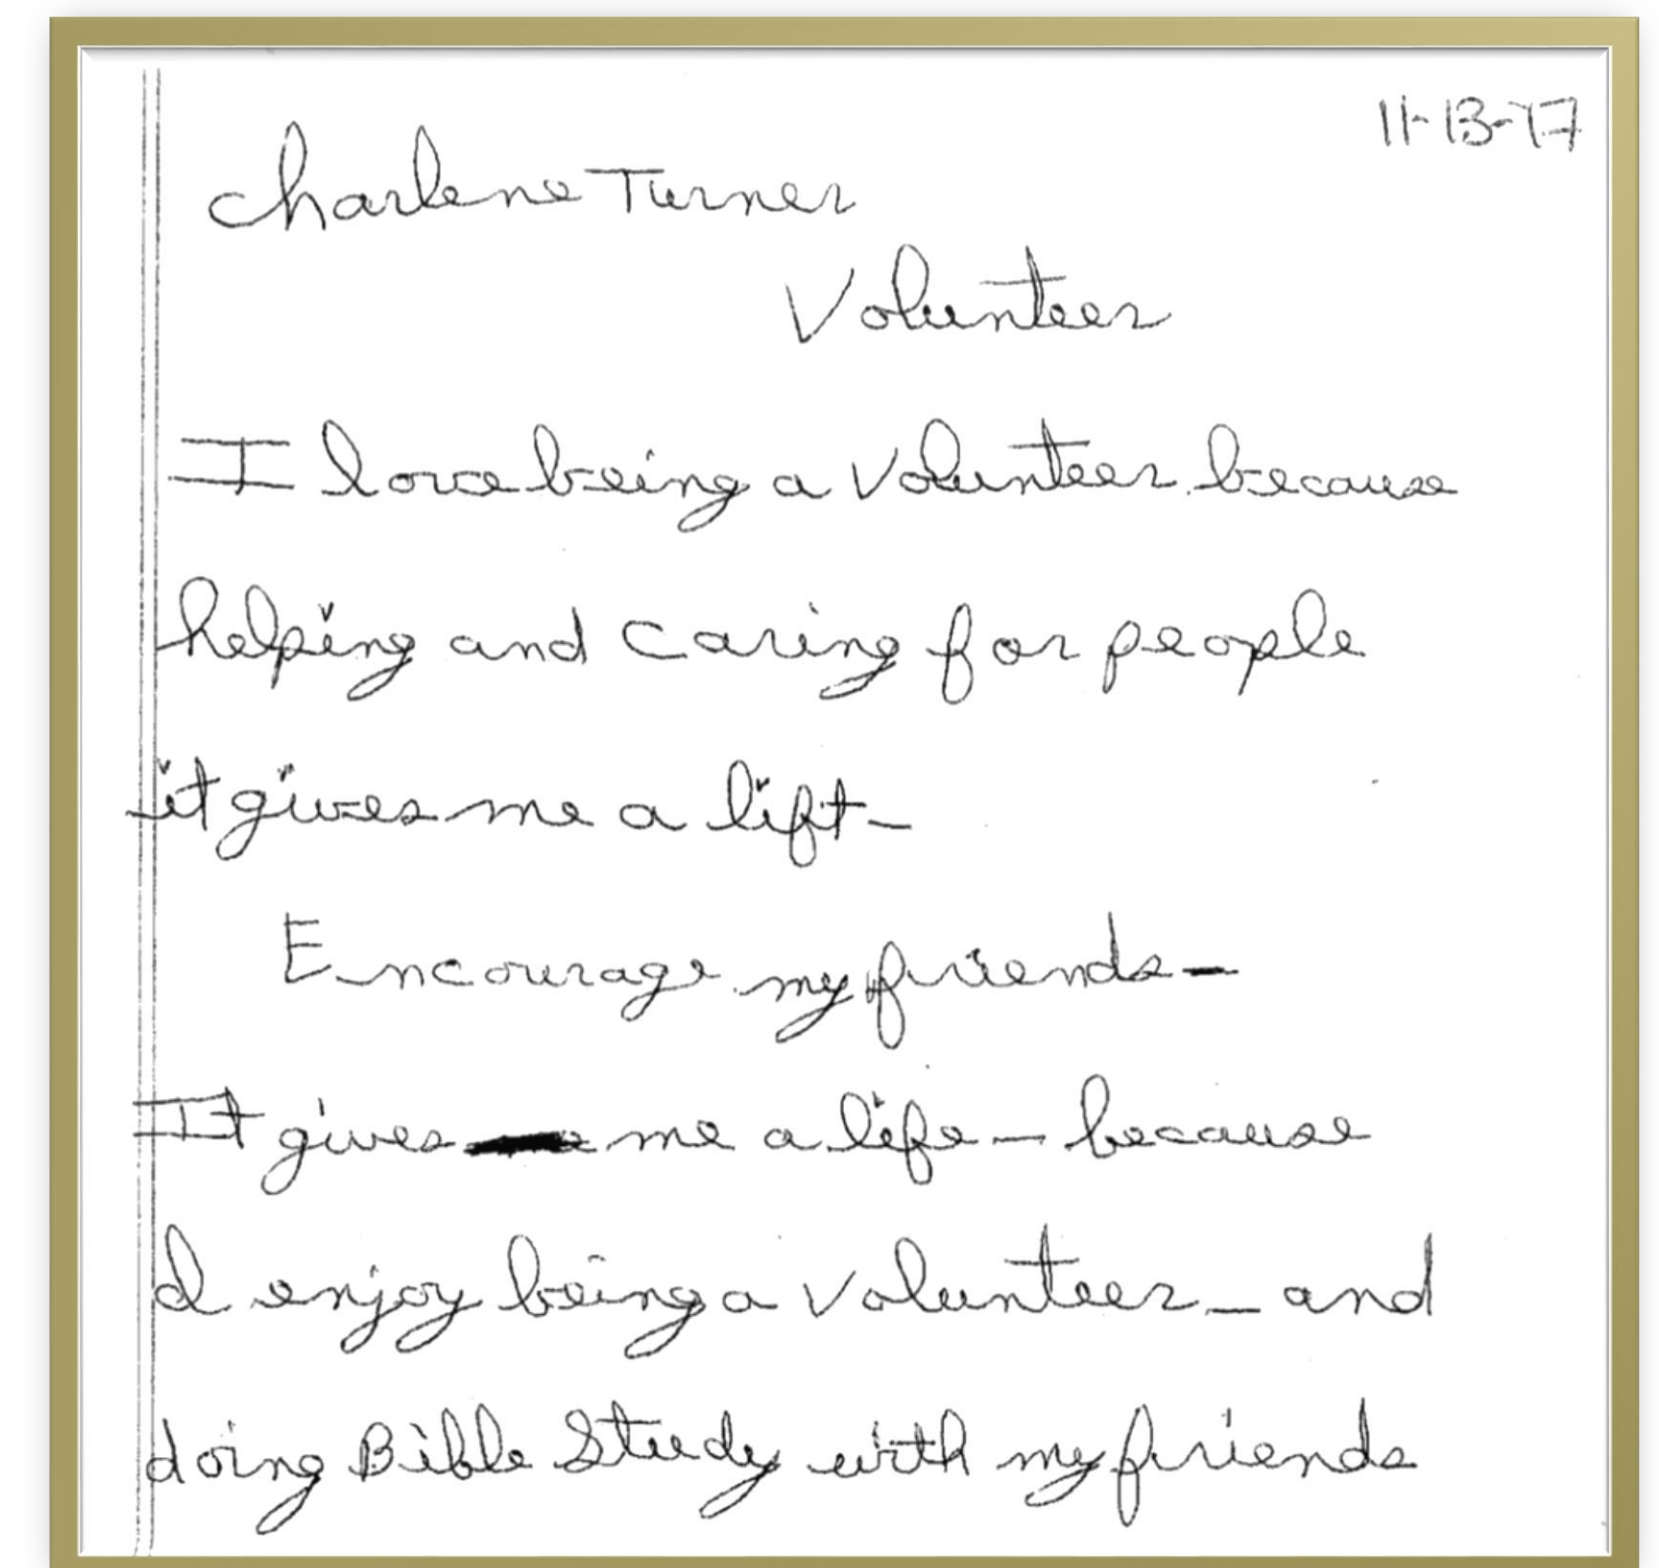 11-13-17
Charlene Turner
Volunteer
I love being a volunteer because
helping and caring for people
it gives me a lift -
Encourage my friends -
It gives me a life - because
I enjoy being a volunteer - and
doing Bible Study with my friends